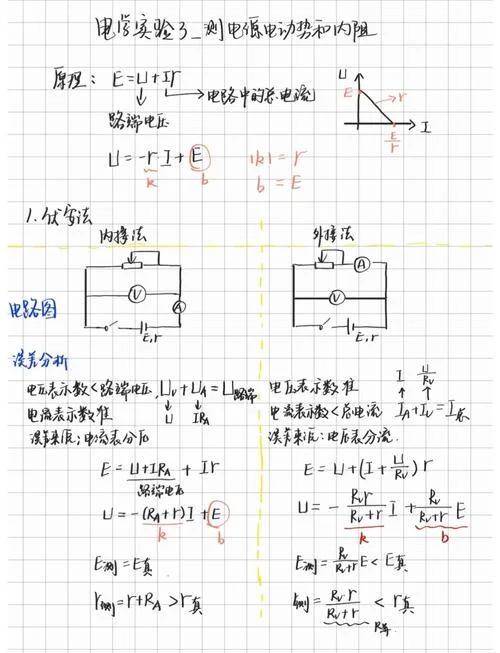 电学实验3_测电源电动势和内阻
原理: E=U+Ir
电路中的总电流
路端电压
U=-r·I+E
k b
|k|=r
b=E
U
E
r
E/r
I
1.伏安法
内接法
V
A
E,r
外接法
A
V
E,r
电路图
误差分析
电压表示数<路端电压, Uv+UA=U路端
U IRA
电流表示数准
误差来源:电流表分压
E=U+IRA+Ir
路端电压
U=-(RA+r)I+E
k b
E测=E真
r测=r+RA>r真
电压表示数准 I U/Rv
电流表示数<总电流 IA+Iv=I总
误差来源:电压表分流.
E=U+(I+U/Rv)r
U=-Rvr/(Rv+r) I+Rv/(Rv+r) E
k b
E测=Rv/(Rv+r) E<E真
r测=Rvr/(Rv+r)<r真
R并